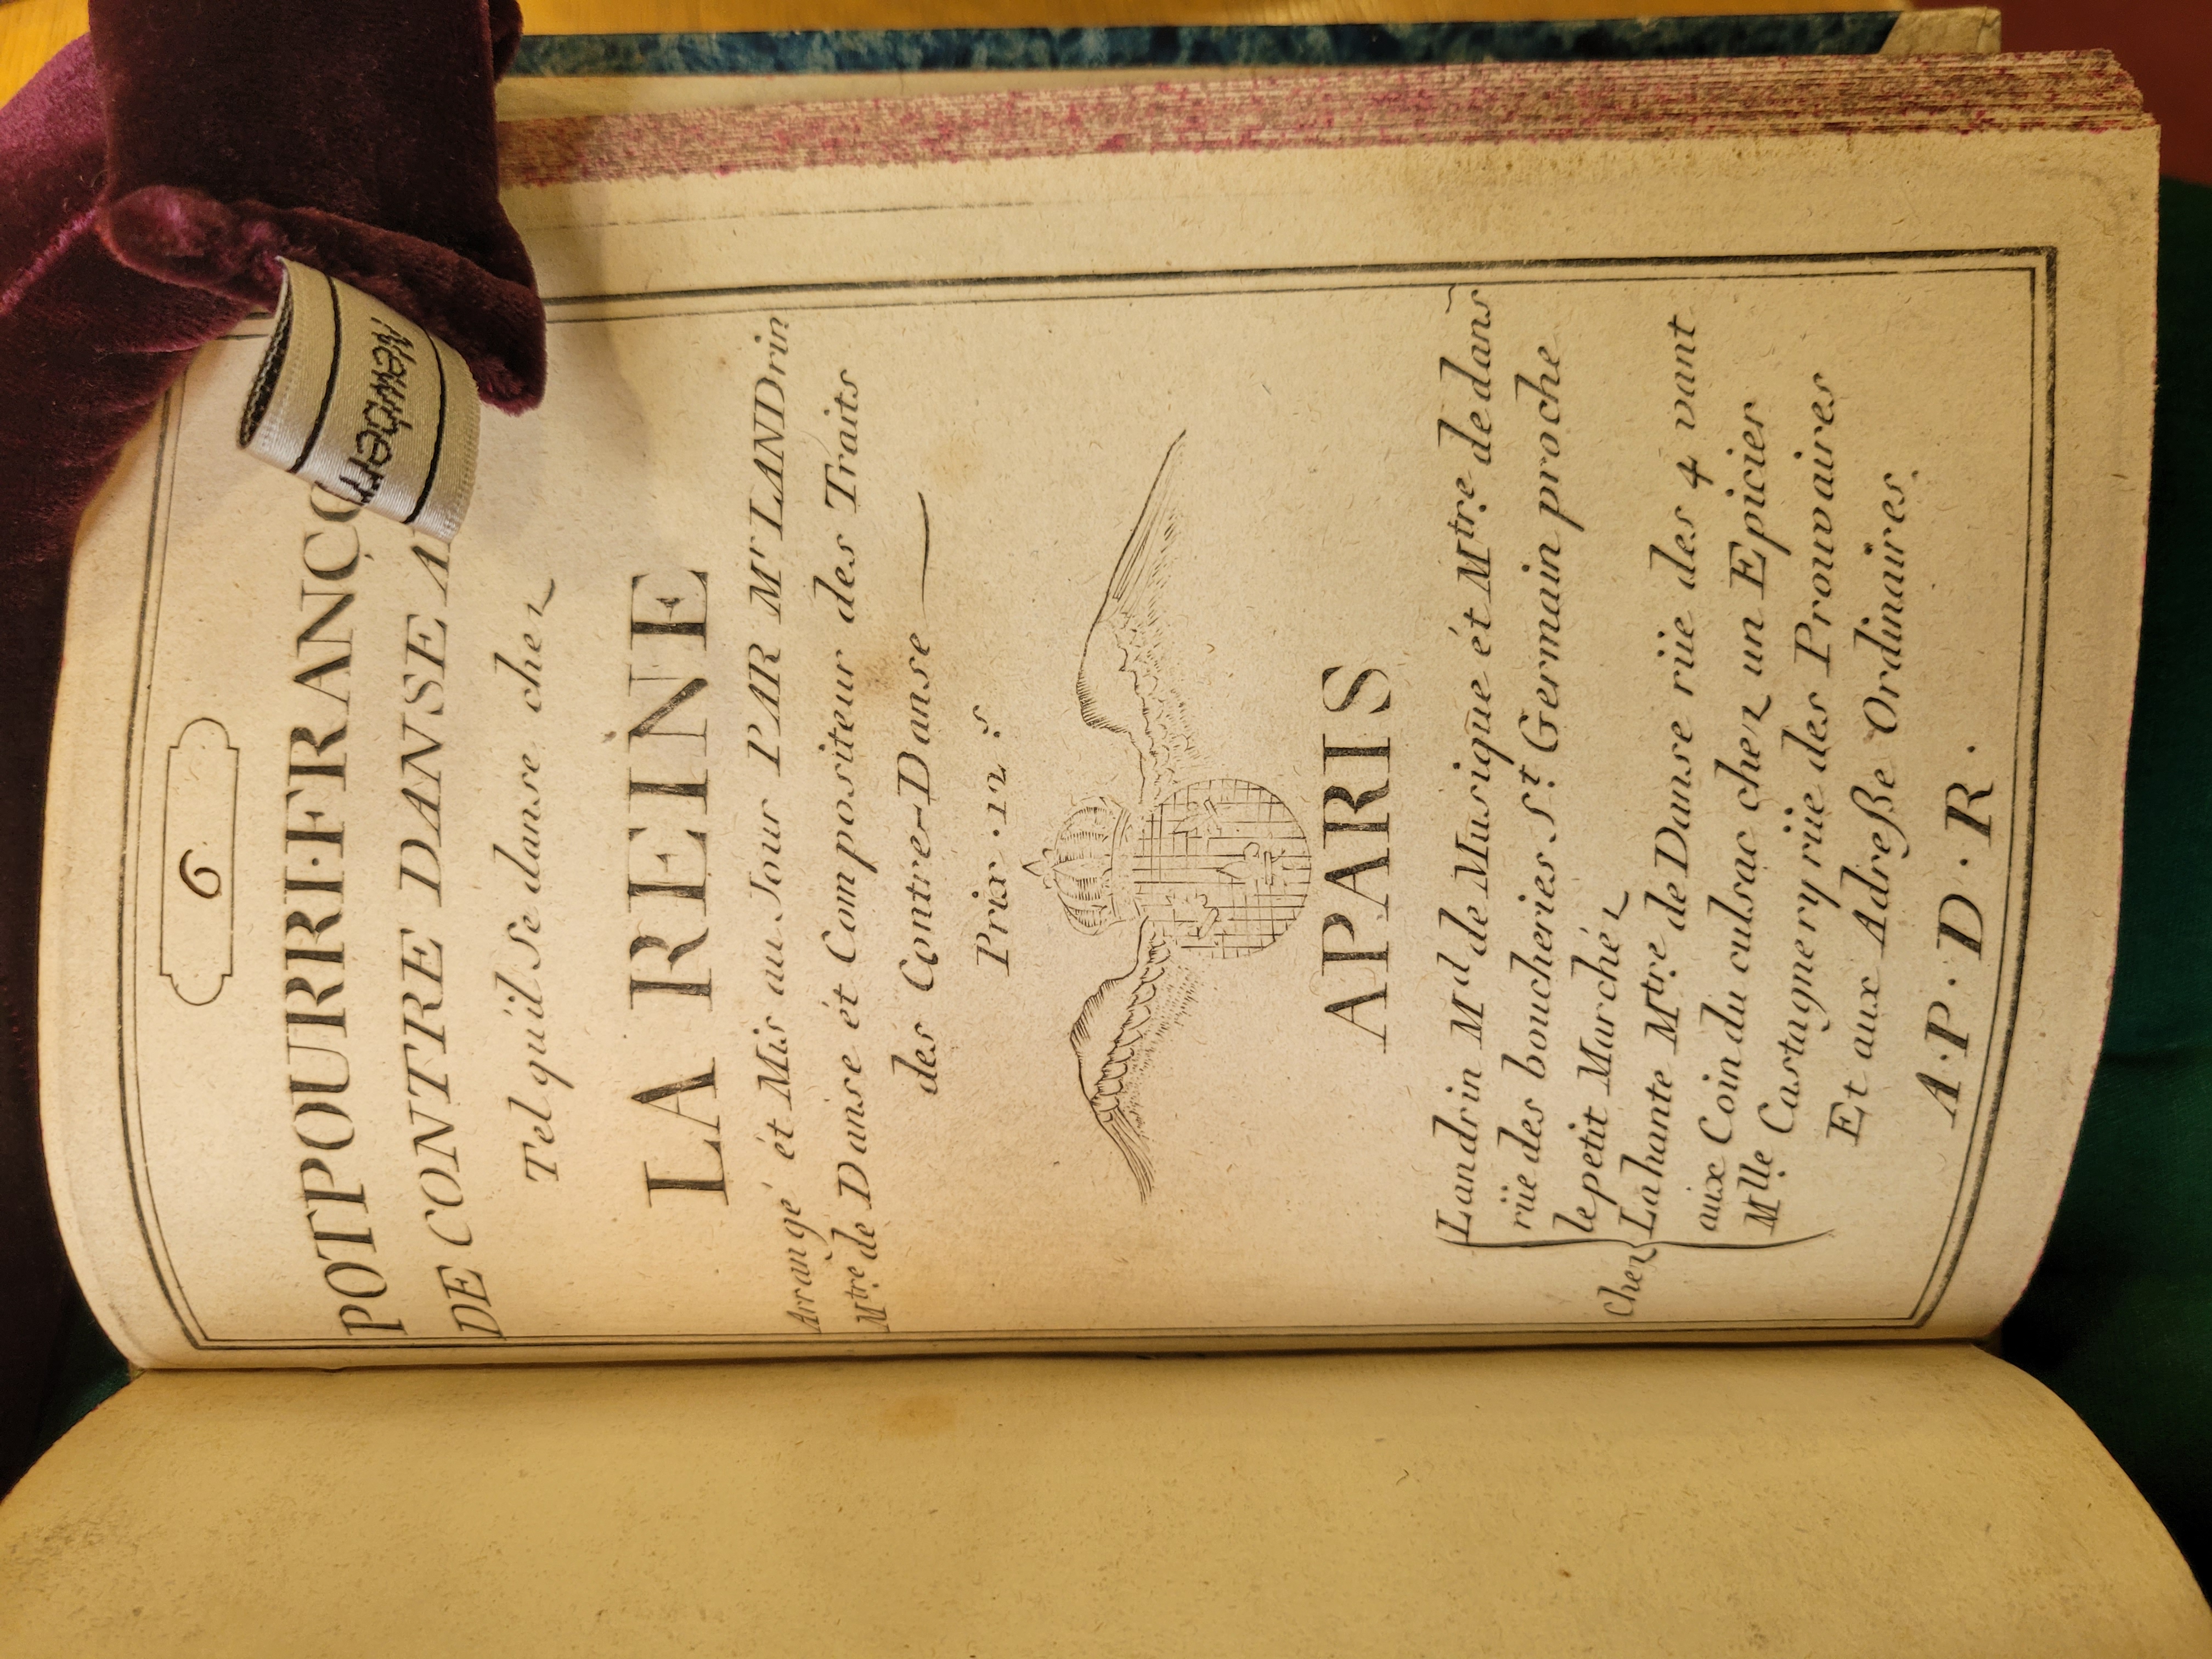 6
POTPOURRI·FRANÇO
DE CONTRE DANSE
Tel qu'il Se danse chez
LA REINE
Arrangé ét Mis au Jour PAR Mr LANDrin
Mtre de Danse ét Compositeur des Traits
des Contre-Danse
Prix .12.s
APARIS
Landrin Md de Musique ét Mtre de dans
rüe des boucheries St Germain proche
le petit Marché
Chez Lahante Mtre de Danse rüe des 4 vant
aux Coin du culsac chez un Epicier
Mlle Castagnery rüe des Prouvaires
Et aux Adreße Ordinaires.
A·P·D·R·
Newberr